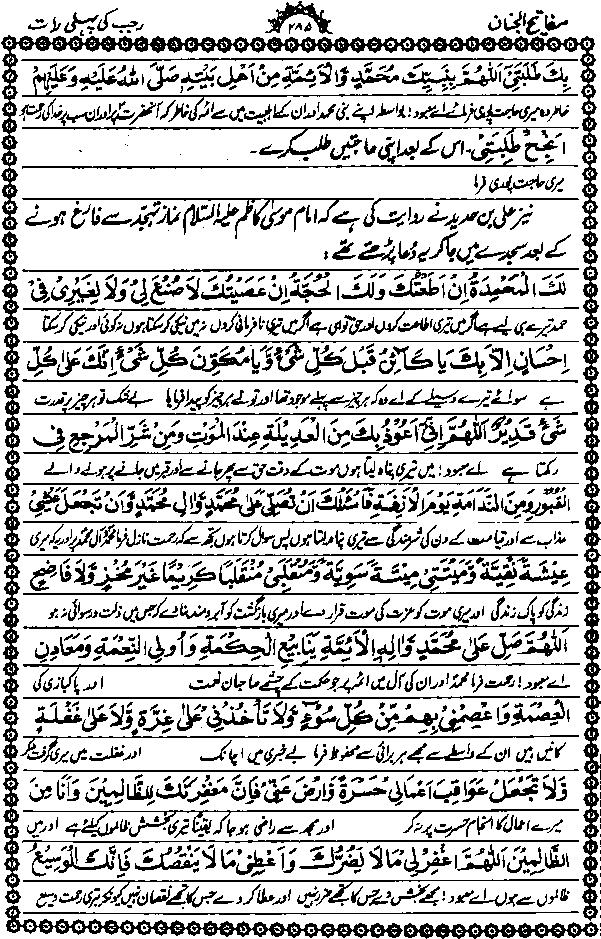 مفاتیح الجنان ۲۸۵ رجب کی پہلی رات
بِكَ طَلِبَتِىْ اَللّٰهُمَّ بِنَبِيِّكَ مُحَمَّدٍ وَّالْاَئِمَّةِ مِنْ اَهْلِ بَيْتِهٖ صَلَّى اللهُ عَلَيْهِ وَعَلَيْهِمْ
خاطر وہ میری حاجت پوری فرمائے اے معبود! بواسطہ اپنے نبی محمد اور ان کے اہلبیت میں سے ائمہ کی خاطر کہ آنحضرت پر اور ان سب پر خدا کی رحمت ہو
اَنْجِحْ طَلِبَتِىْ۔ اس کے بعد اپنی حاجتیں طلب کرے۔
میری حاجت پوری فرما
نیز علی بن حدید نے روایت کی ہے کہ امام موسیٰ کاظم علیہ السلام نماز تہجد سے فارغ ہونے
کے بعد سجدے میں جا کر یہ دُعا پڑھتے تھے:
لَكَ الْمَحْمِدَةُ اِنْ اَطَعْتُكَ وَلَكَ الْحُجَّةُ اِنْ عَصَيْتُكَ لَا صُنْعَ لِىْ وَلَا لِغَيْرِىْ فِىْ
حمد تیرے ہی لیے ہے اگر میں تیری اطاعت کروں اور حق تو ہی ہے اگر میں تیری نافرمانی کروں نہ میں نیکی کر سکتا ہوں نہ کوئی اور نیکی کر سکتا
اِحْسَانٍ اِلَّا بِكَ يَا كَآئِنُ قَبْلَ كُلِّ شَىْءٍ وَّيَا مُكَوِّنَ كُلِّ شَىْءٍ اِنَّكَ عَلٰى كُلِّ
ہے سوائے تیرے وسیلے کے اے وہ کہ ہر چیز سے پہلے موجود تھا اور تو نے ہر چیز کو پیدا فرمایا بے شک تو ہر چیز پر قدرت
شَىْءٍ قَدِيْرٌ اَللّٰهُمَّ اِنِّىْ اَعُوْذُ بِكَ مِنَ الْعَدِيْلَةِ عِنْدَ الْمَوْتِ وَمِنْ شَرِّ الْمَرْجِعِ فِى
رکھتا ہے اے معبود! میں تیری پناہ لیتا ہوں موت کے وقت حق سے پھر جانے سے اور قبر میں جانے پر ہونے والے
الْقُبُوْرِ وَمِنَ النَّدَامَةِ يَوْمَ الْاٰزِفَةِ فَاَسْئَلُكَ اَنْ تُصَلِّىَ عَلٰى مُحَمَّدٍ وَّاٰلِ مُحَمَّدٍ وَّاَنْ تَجْعَلَ عَيْشِىْ
عذاب سے اور قیامت کے دن کی شرمندگی سے تیری پناہ لیتا ہوں پس سوال کرتا ہوں تجھ سے کہ رحمت نازل فرما محمد و آل محمد پر اور یہ کہ میری
عِيْشَةً نَّقِيَّةً وَّمَيْتَتِىْ مِيْتَةً سَوِيَّةً وَّمُنْقَلَبِىْ مُنْقَلَبًا كَرِيْمًا غَيْرَ مُخْزٍ وَّلَا فَاضِحٍ
زندگی کو پاک زندگی اور میری موت کو عزت کی موت قرار دے اور میری بازگشت کو آبرو مند بنا دے کہ جس میں ذلت و رسوائی نہ ہو
اَللّٰهُمَّ صَلِّ عَلٰى مُحَمَّدٍ وَّاٰلِهِ الْاَئِمَّةِ يَنَابِيْعِ الْحِكْمَةِ وَاُولِى النِّعْمَةِ وَمَعَادِنِ
اے معبود! رحمت فرما محمد اور ان کی آل میں ائمہ پر جو حکمت کے چشمے صاحبان نعمت اور پاکبازی کی
الْعِصْمَةِ وَاعْصِمْنِىْ بِهِمْ مِّنْ كُلِّ سُوْٓءٍ وَّلَا تَأْخُذْنِىْ عَلٰى غِرَّةٍ وَّلَا عَلٰى غَفْلَةٍ
کانیں ہیں ان کے واسطے سے مجھے ہر برائی سے محفوظ فرما بے خبری میں اچانک اور غفلت میں میری گرفت نہ کر
وَّلَا تَجْعَلْ عَوَاقِبَ اَعْمَالِىْ حَسْرَةً وَّارْضَ عَنِّىْ فَاِنَّ مَغْفِرَتَكَ لِلظَّالِمِيْنَ وَاَنَا مِنَ
میرے اعمال کا انجام حسرت پر نہ کر اور مجھ سے راضی ہو جا کہ یقیناً تیری بخشش ظالموں کیلئے ہے اور میں
الظَّالِمِيْنَ اَللّٰهُمَّ اغْفِرْ لِىْ مَا لَا يَضُرُّكَ وَاَعْطِنِىْ مَا لَا يَنْقُصُكَ فَاِنَّكَ الْوَسِيْعُ
ظالموں سے ہوں اے معبود! مجھے بخش دے جس کا تجھے ضرر نہیں اور عطا کر دے جس کا تجھے نقصان نہیں کیونکہ تیری رحمت وسیع